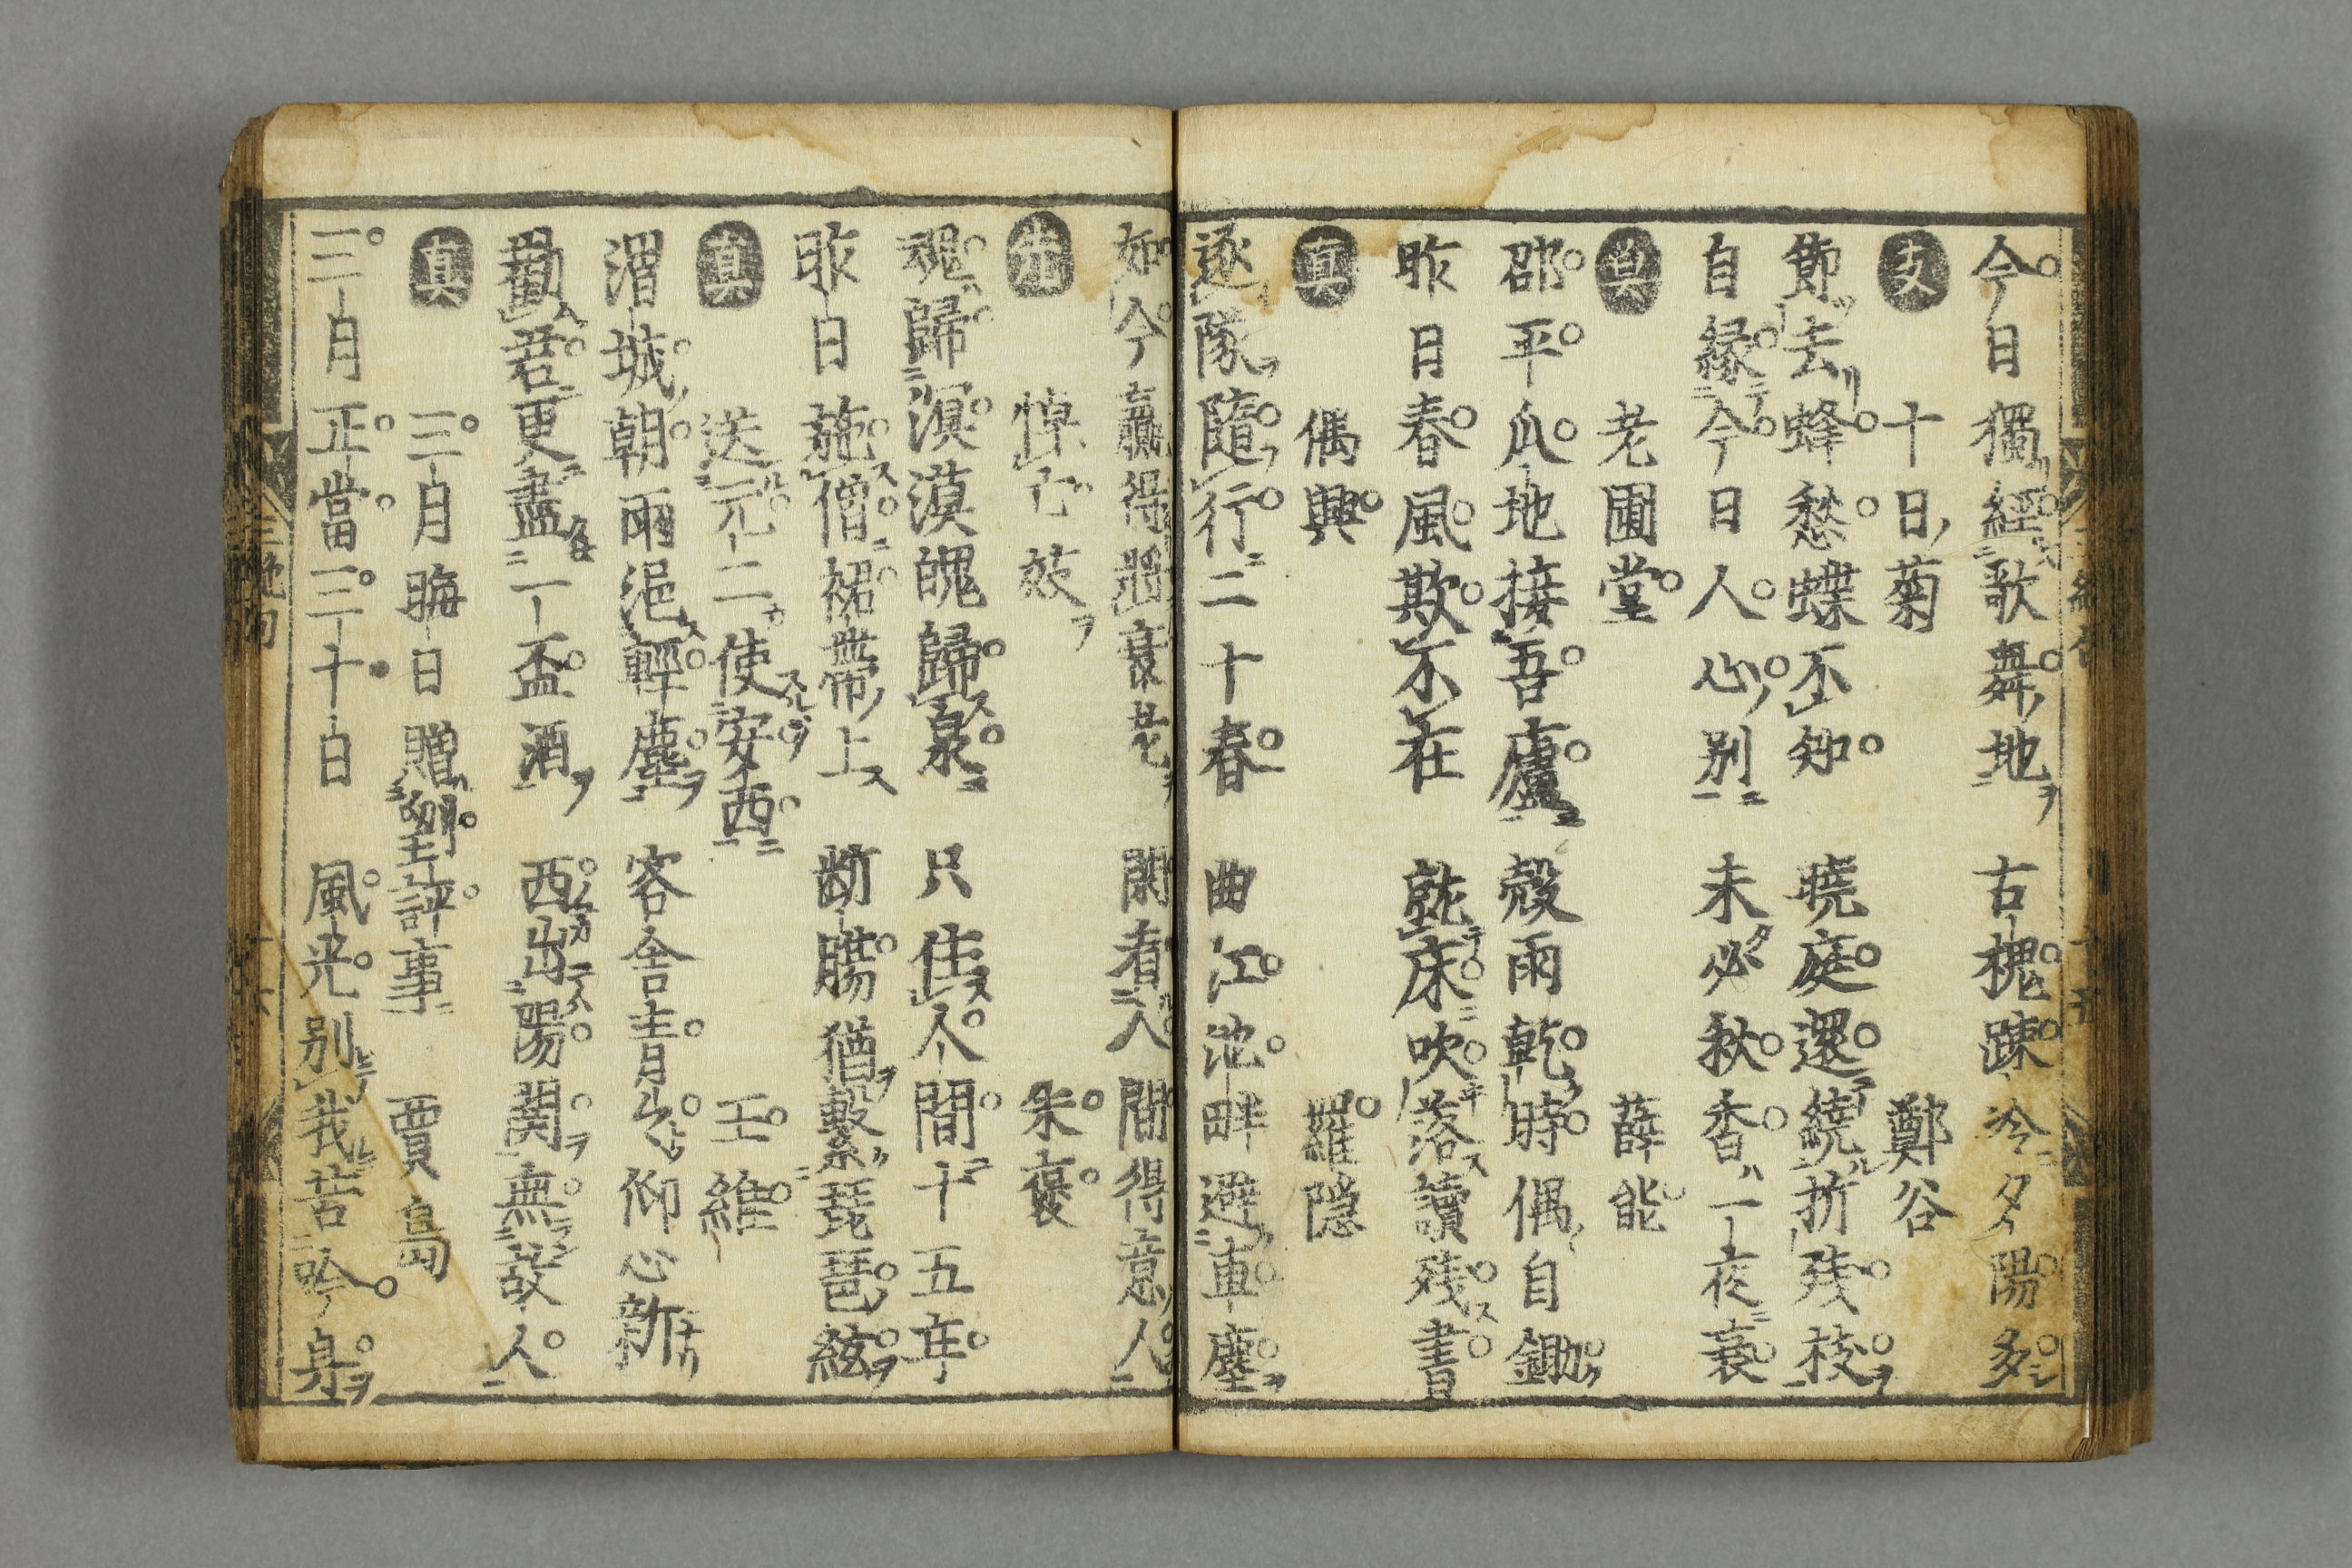 今日獨經歌舞地 古槐疎冷夕陽多
支 十日菊 鄭谷
節去蜂愁蝶不知 曉庭還繞折残枝
自縁今日人心别 未必秋香一夜衰
真 老圃堂 薛能
邵平瓜地接吾廬 穀雨乾時偶自鋤
昨日春風欺不在 就床吹落讀残書
真 偶興 羅隠
逐隊隨行二十春 曲江池畔避車塵
如今贏得將衰老 閑看人間得意人
先 悼亡妓 朱褒
魂歸溟漠魄歸泉 只住人間十五年
昨日施僧裙帶上 断膓猶繫琵琶絃
真 送元二使安西 王維
渭城朝雨浥輕塵 客舎青山仰心新
勸君更盡一盃酒 西出陽関無故人
真 三月晦日贈劉評事 賈島
三月正當三十日 風光别我苦吟身
三絶句